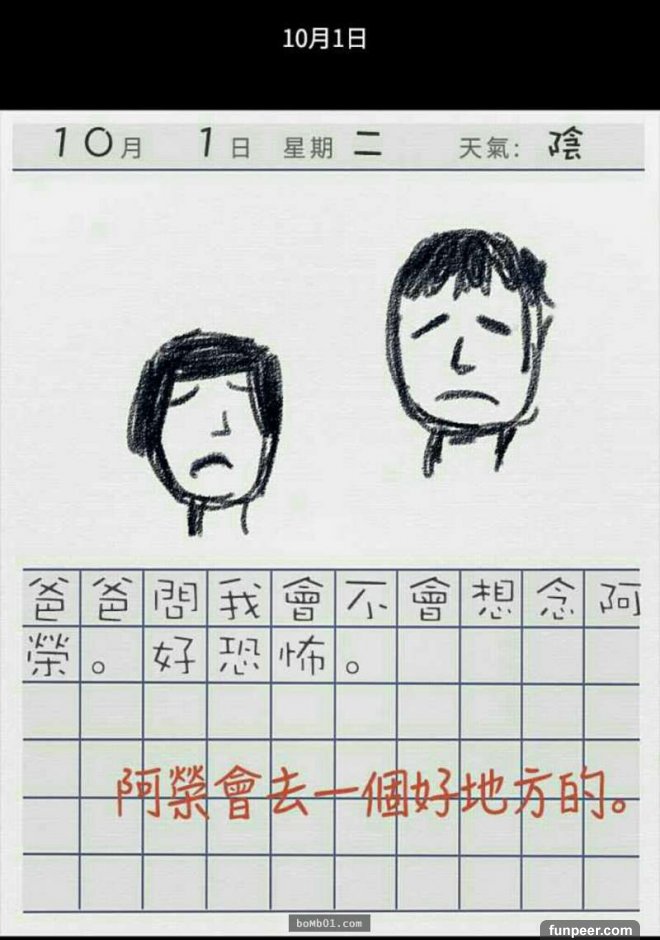 10月1日
10月 1日 星期二 天氣: 陰
爸爸問我會不會想念阿
榮。好恐怖。
阿榮會去一個好地方的。
boMb01.com
funpeer.com